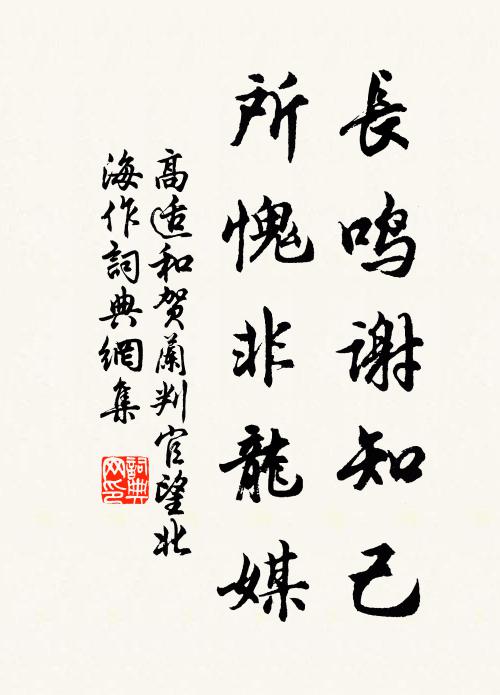 長鳴謝知己
所愧非龍媒
高适和贺蘭判官望北
海作詞典網集
詞典
网印